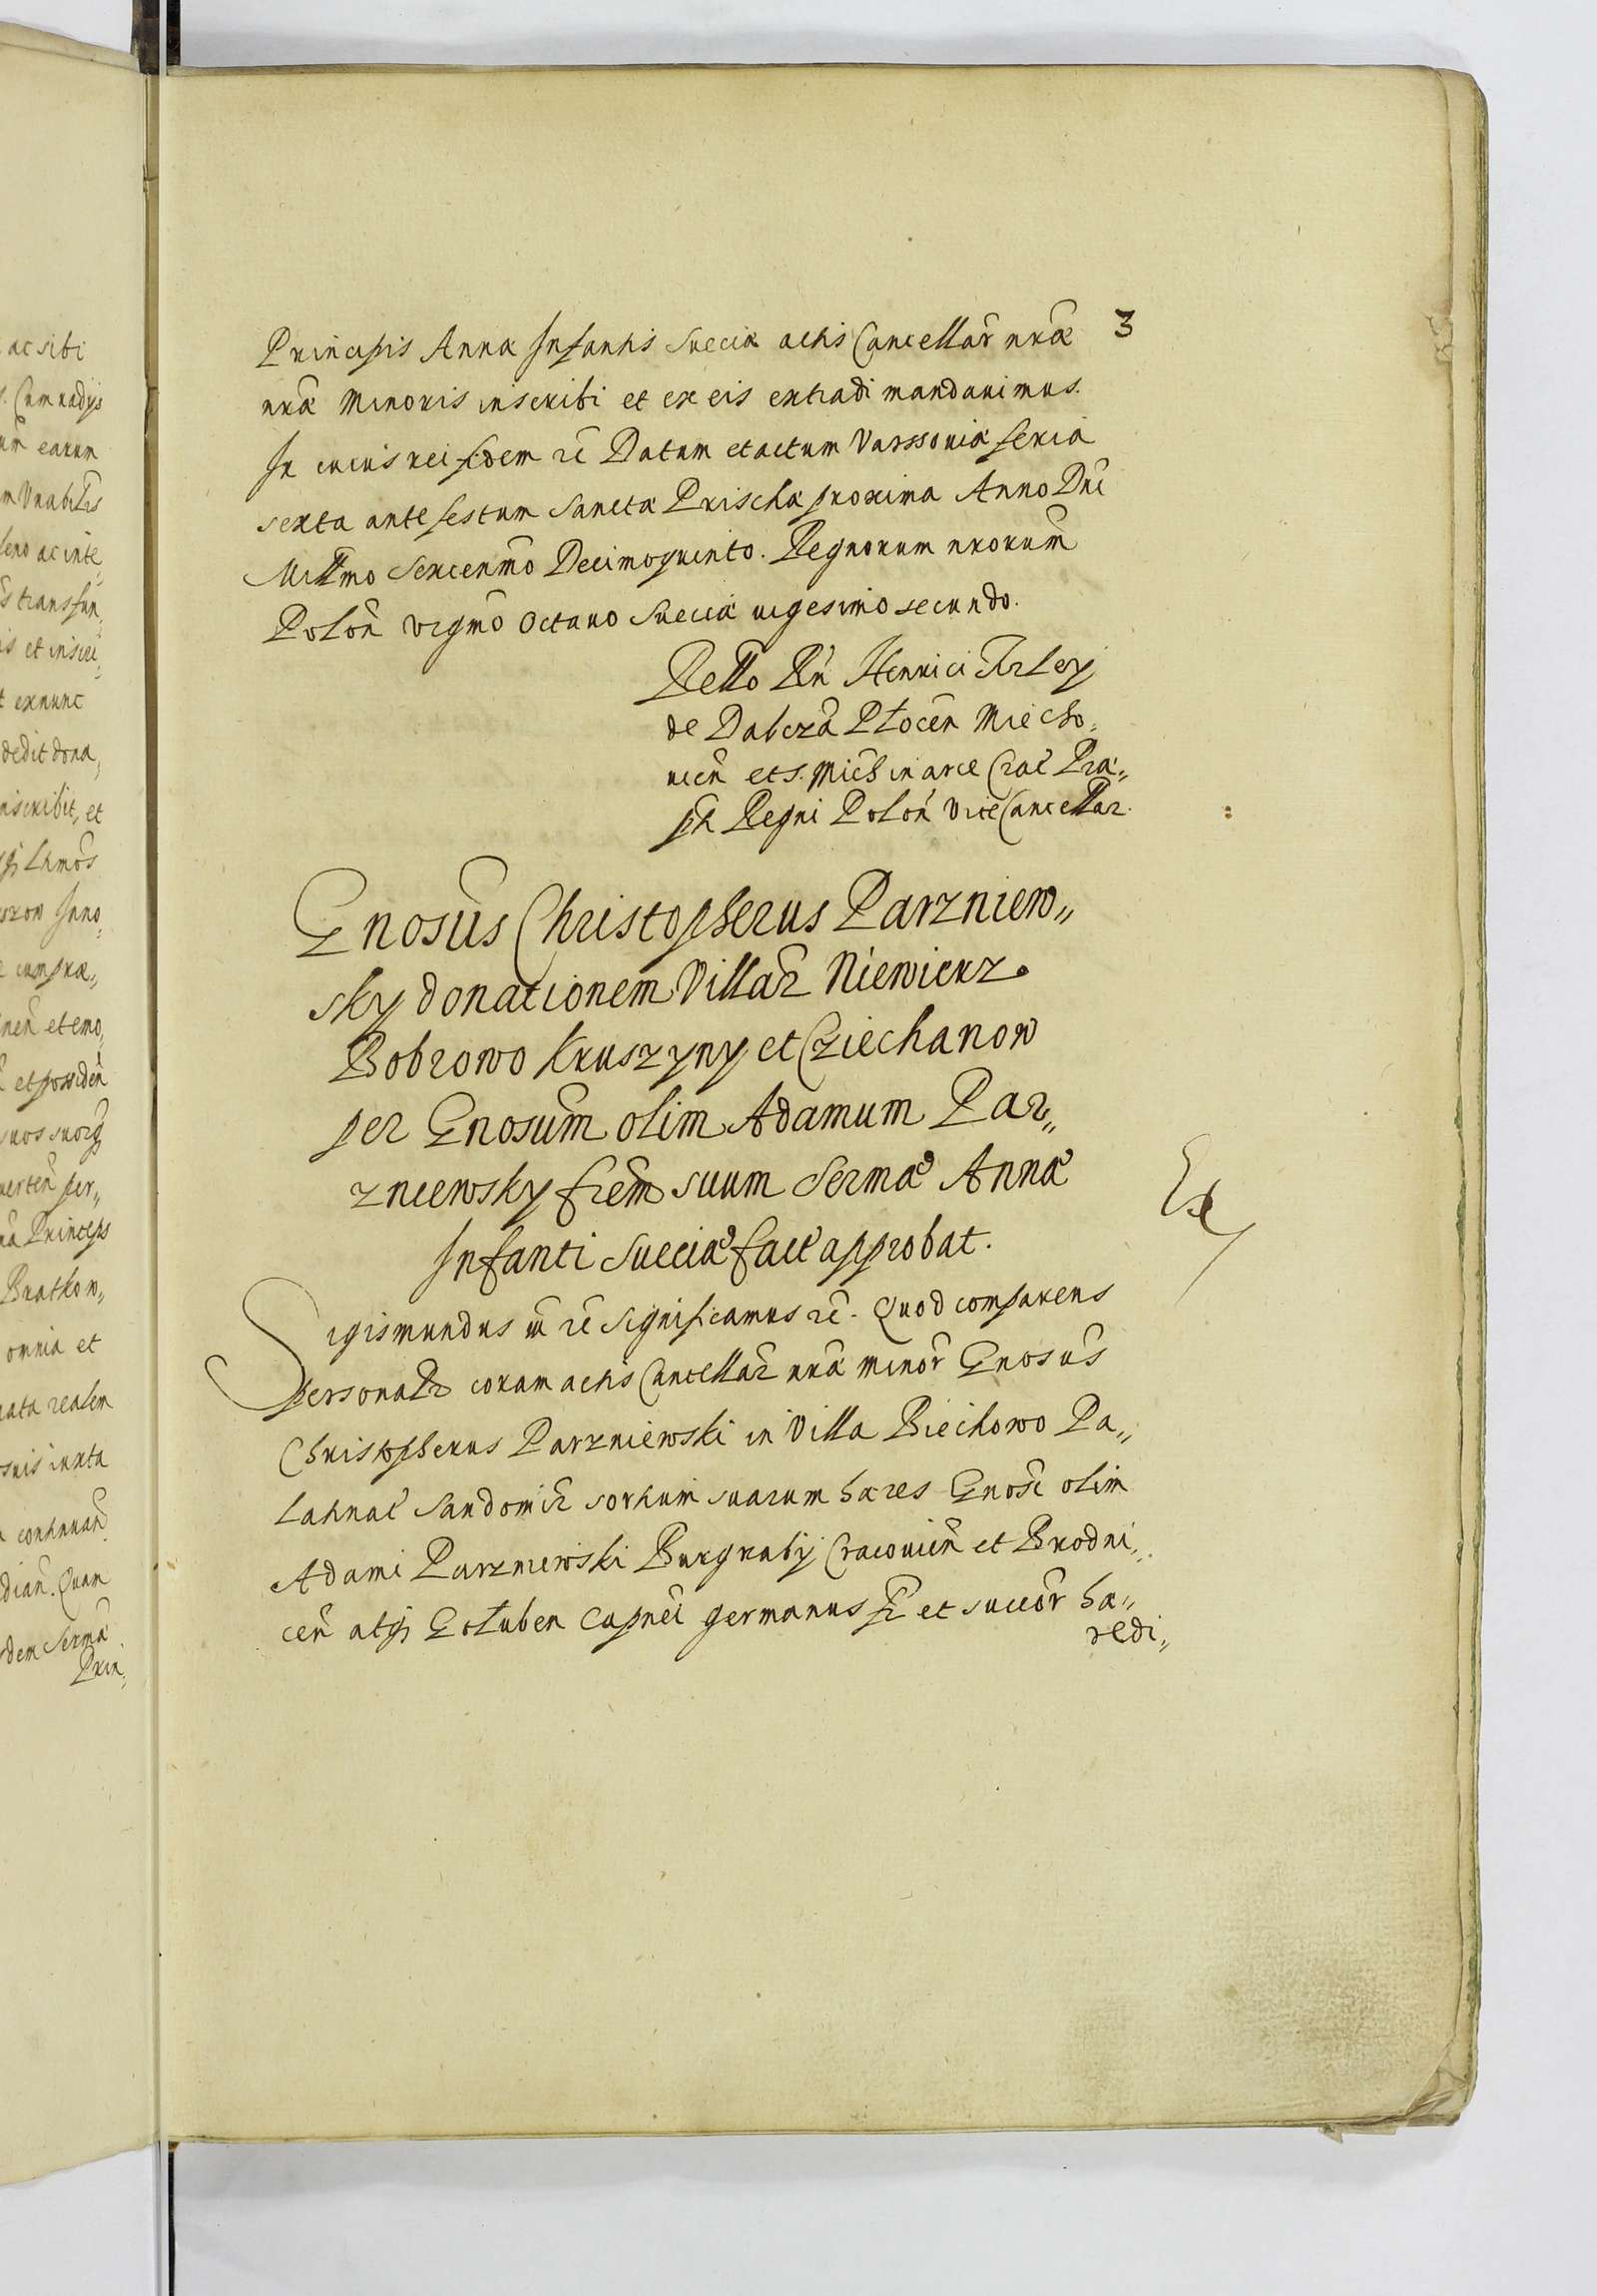 ac sibi
Cum radijs
earum
Vnabilis
leno ac inte
transfun„
is et inscri„
t exnunc
dedit dona„
inscribit, et
Inno„
cumpræ„
et emo„
et possiden̄
suos suorꝫ
per„
Princeps
Bratkow„
omnia et
realem
suis iuxta
continuan̄
Quam
dem Sermæ
Prin„
3
Principis Annæ Infantis Sueciæ actis Cancellar̄ nr̄æ
nr̄æ Minoris inscribi et ex eis extradi mandauimus.
In cuius rei fidem rc̄ Datum et actum Varssouiæ feria
sexta ante festum Sanctæ Prischæ proxima Anno Dn̄i
Mill̄mo Sexcenm̄o Decimoquinto. Regnorum nr̄orum
Polon̄ vigm̄o Octauo Sueciæ uigesimo secundo.
Rello Rn̄ Henrici Firley
de Dabrza Płocen̄ Miecho„
uien̄ et S. Mich̄ in arce Crac̄ Præ„
pti Regni Polon̄ ViceCancellar.
Gnosūs Christopherus Parzniew„
sky donationem Villar̄ Niewierz.
Bobrowo Kruszyny et Cziechanow
per Gnosūm olim Adamum Par„
zniewsky frēm suum Sermæ Annæ
Infanti Sueciæ fact̄ approbat.
Ex
Sigismundus iii rc̄ Significamus rc̄. Quod comparens
personalr̄ coram actis Cancellar̄ nr̄æ minor̄ Gnosūs
Christopherus Parzniewski in Villa Biechowo Pa„
latinat̄ Sandomir̄ sortium suarum hæres Gnosī olim
Adami Parzniewski Burgrabÿ Cracouien̄ et Brodni„
cen̄ atqꝫ Gołuben Capnēi germanus fr̄ et succor̄ hæ„
redi„